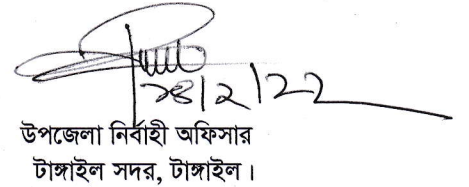 ২৪/২/২২
উপজেলা নির্বাহী অফিসার
টাঙ্গাইল সদর, টাঙ্গাইল।